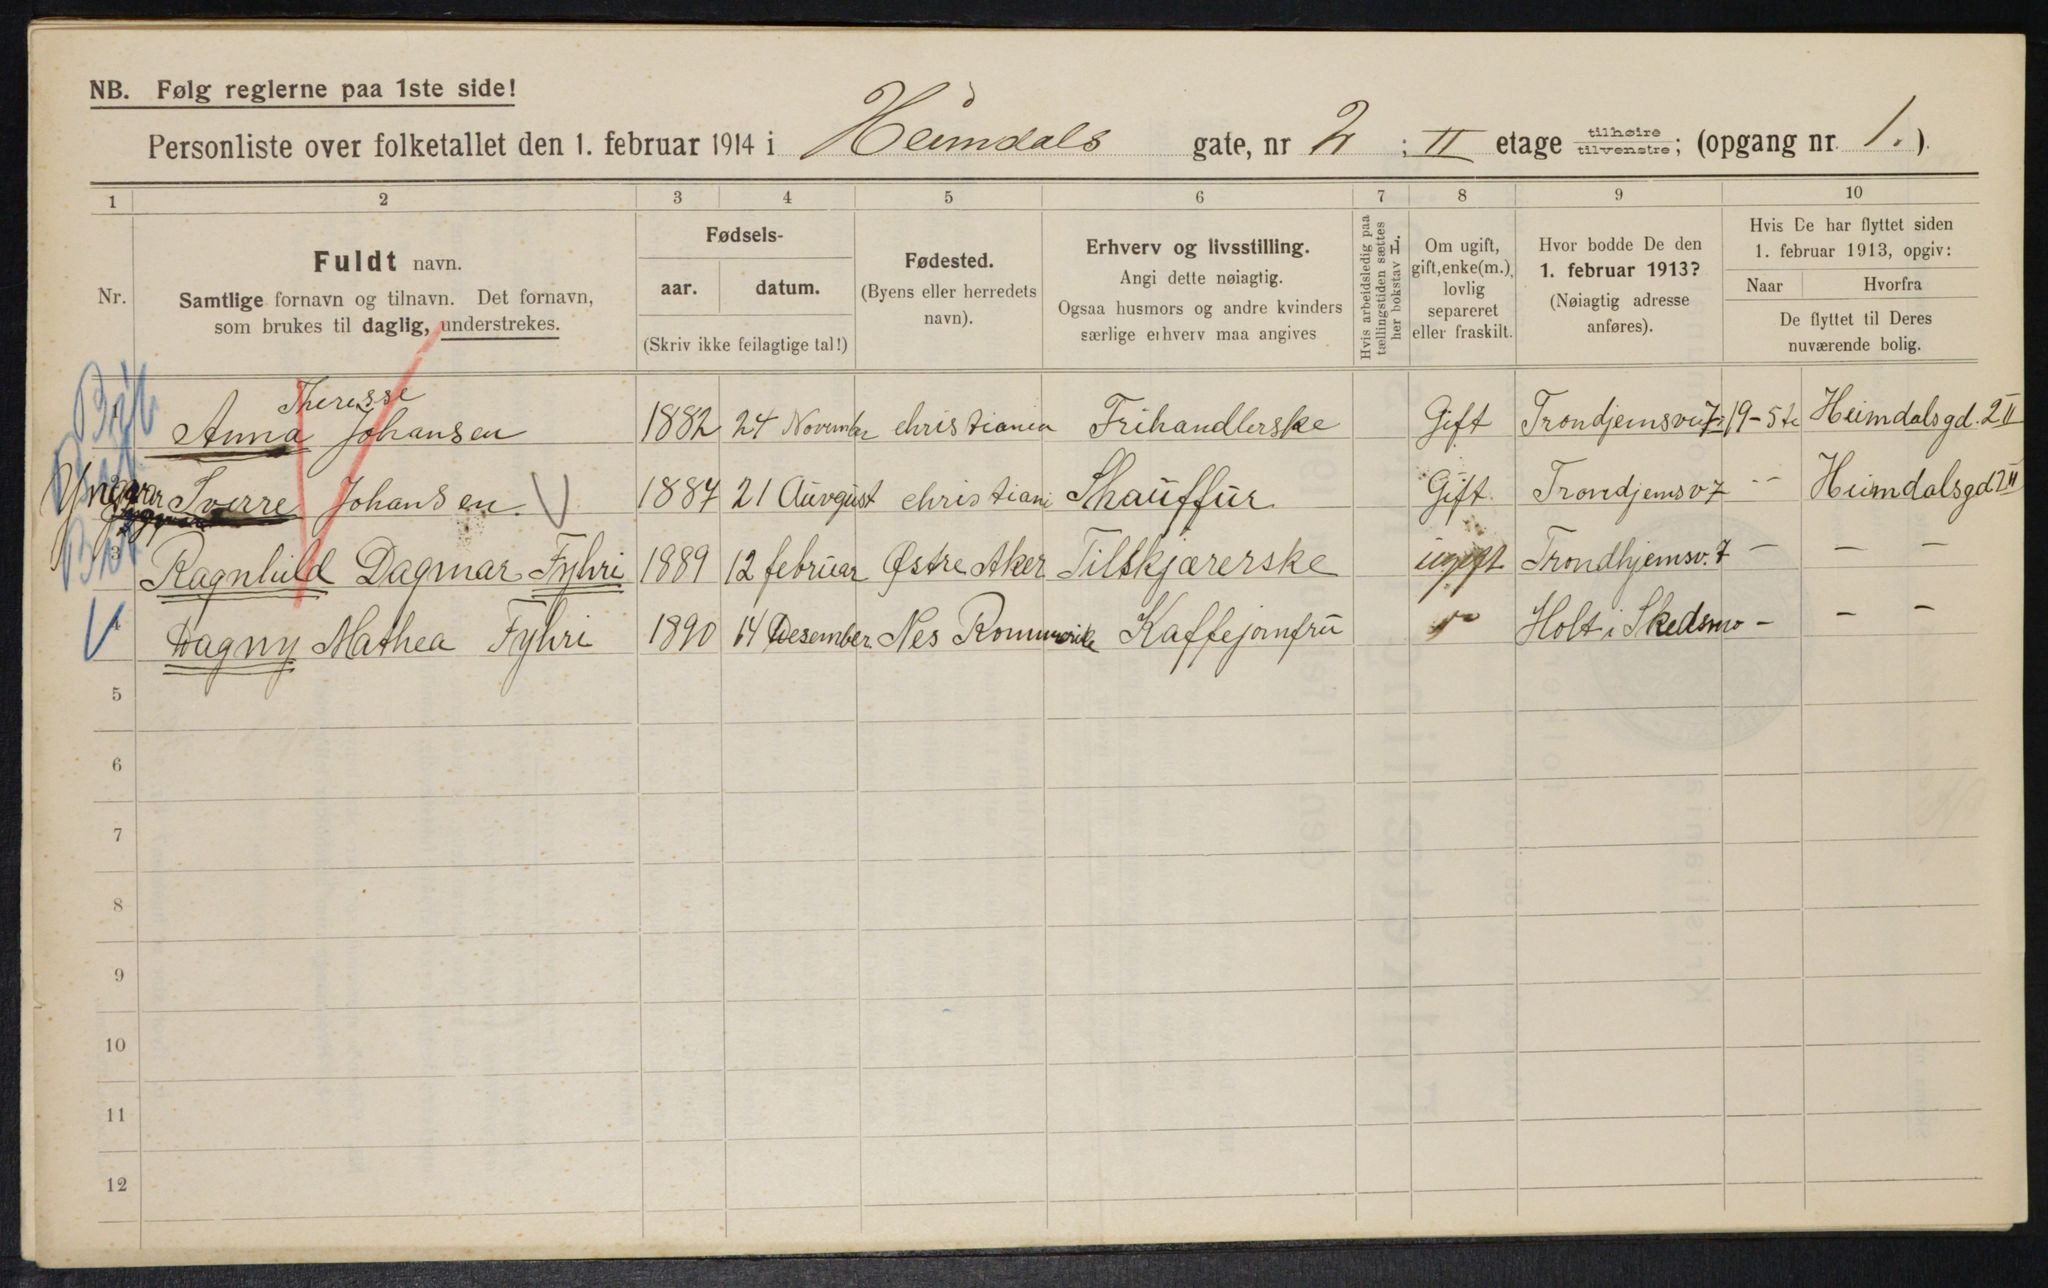 NB. Følg reglerne paa 1ste side!
Personliste over folketallet den 1. februar 1914 i Heimdals gate, nr 2 ; II etage tilhøire tilvenstre; (opgang nr. 1.)
1 2 3 4 5 6 7 8 9 10
Nr.
Fuldt navn.
Samtlige fornavn og tilnavn. Det fornavn,
som brukes til daglig, understrekes.
Fødsels-
aar. datum.
(Skriv ikke feilagtige tal!)
Fødested.
(Byens eller herredets
navn).
Erhverv og livsstilling.
Angi dette nøiagtig.
Ogsaa husmors og andre kvinders
særlige erhverv maa angives
Hvis arbeidsledig paa
tællingstiden sættes
her bokstav L.
Om ugift,
gift, enke(m.),
lovlig
separeret
eller fraskilt.
Hvor bodde De den
1. februar 1913?
(Nøiagtig adresse
anføres).
Hvis De har flyttet siden
1. februar 1913, opgiv:
Naar Hvorfra
De flyttet til Deres
nuværende bolig.
Theresse
Anna Johansen 1882 24 November christiania Frihandlerske Gift Trondjemsv 7 19-5 Heimdalsgd. 2 II
Yngvar Sverre Johansen. 1887 21 Auvgust christiani Shauffur Gift. Trondjemsv 7 - - Heimdalsgd 2 II
3 Ragnhild Dagmar Fyhri 1889 12 februar Østre Aker Tilskjærerske ugift Trondhjemsv. 7 — — —
4 Dagny Mathea Fyhri 1890 14 Desember Nes Rommerike Kaffejomfru Holt i Skedsmo — — —
5
6
7
8
9
10
11
12